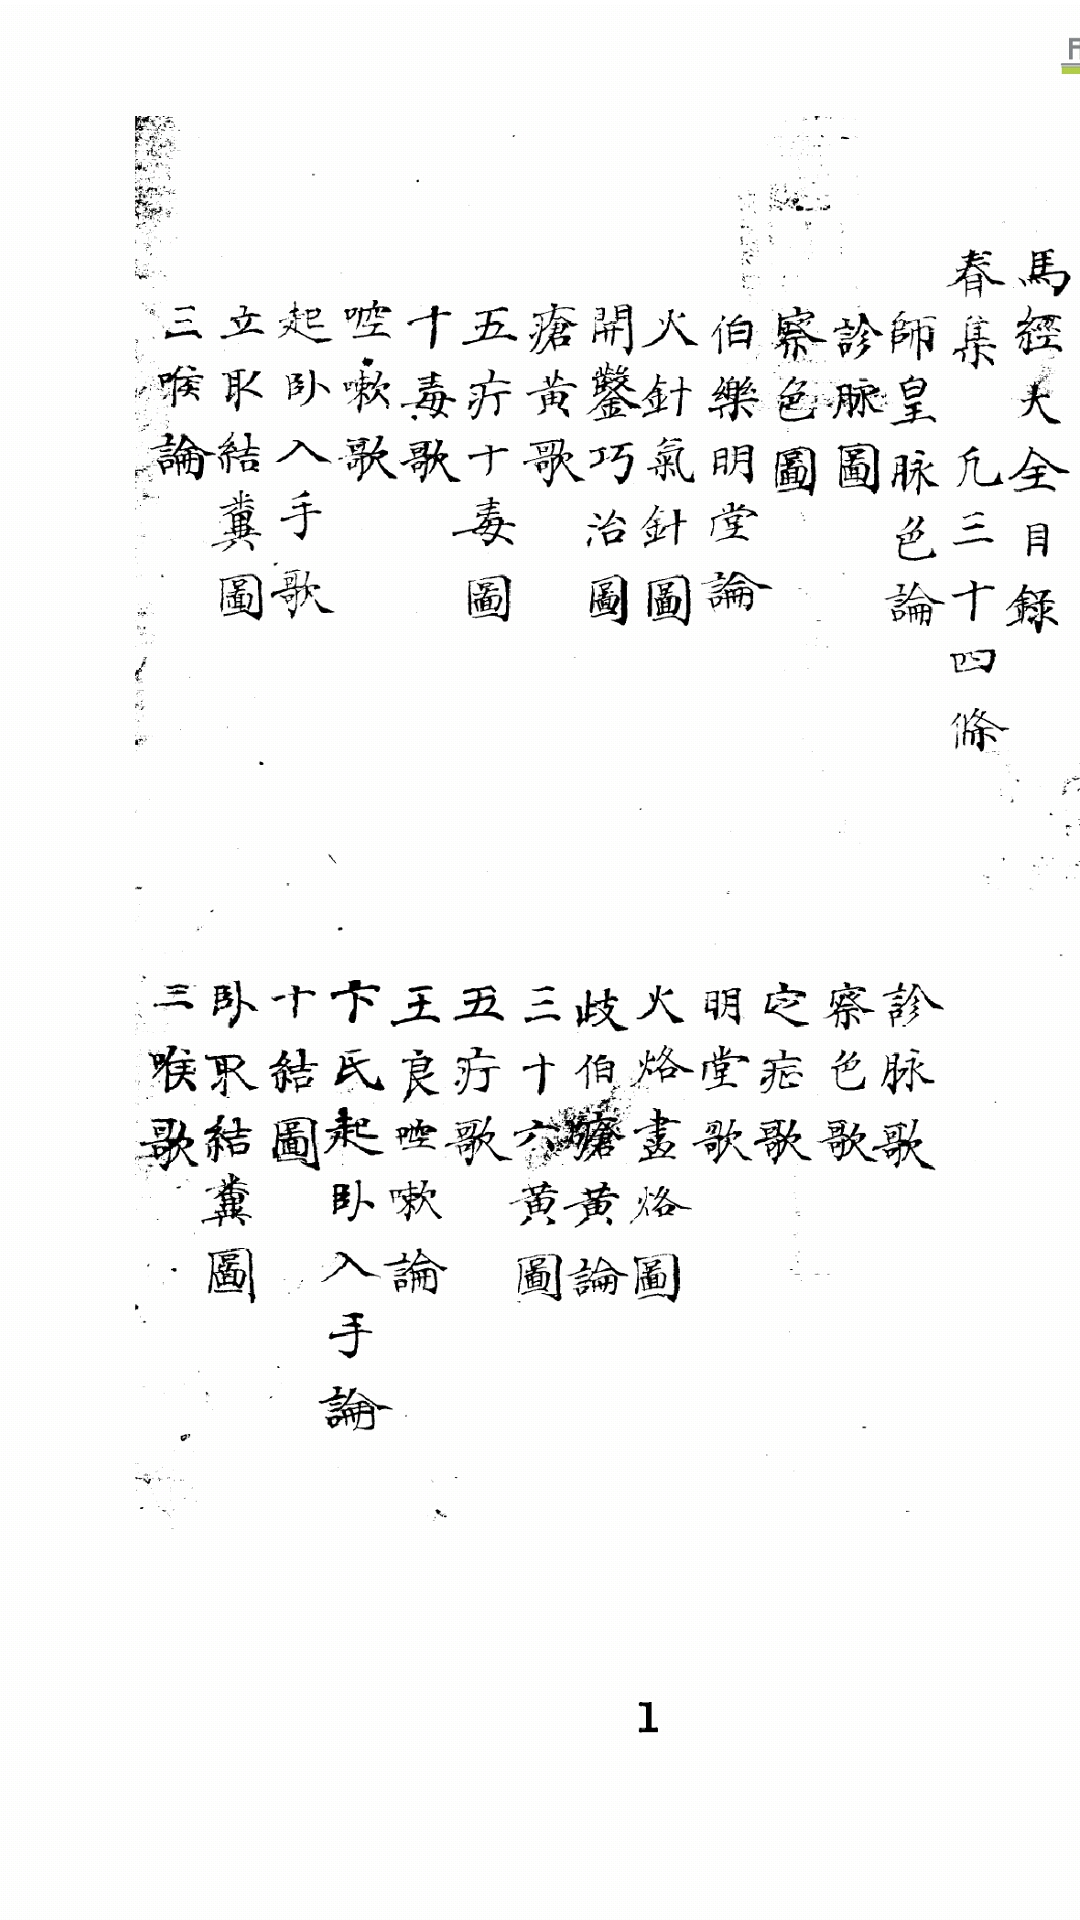 馬經大全目録
春集 凡三十四條
師皇脉色論
診脉歌
診脉圖
察色歌
察色圖
定症歌
伯樂明堂論
明堂歌
火針氣針圖
火烙畫烙圖
開鑿巧治圖
歧伯瘡黃論
瘡黃歌
三十六黃圖
五疔十毒圖
五疔歌
十毒歌
王良啌嗽論
啌嗽歌
卞氏起卧入手論
起卧入手歌
十結圖
立取結糞圖
卧取結糞圖
三喉論
三喉歌
1